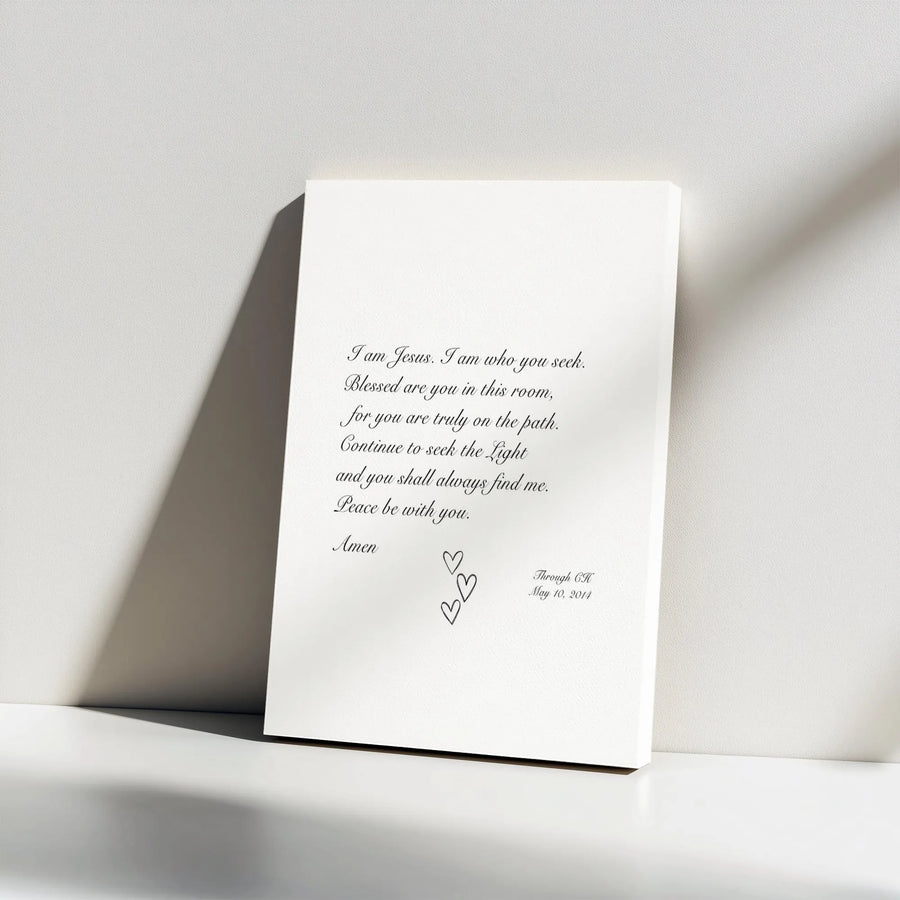 I am Jesus. I am who you seek.
Blessed are you in this room,
for you are truly on the path.
Continue to seek the Light
and you shall always find me.
Peace be with you.
Amen
Through CK
May 10, 2014